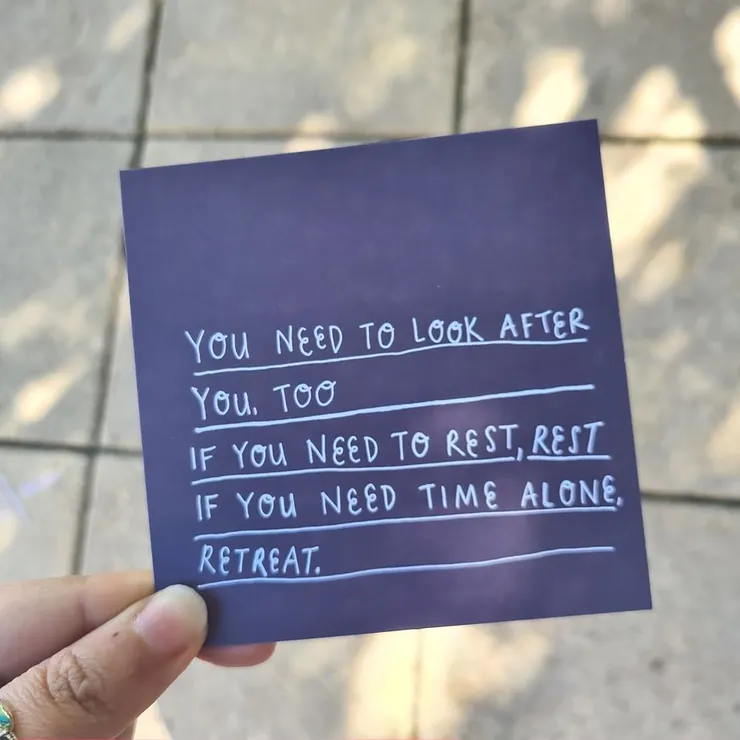 YOU NEED TO LOOK AFTER
YOU, TOO
IF YOU NEED TO REST, REST
IF YOU NEED TIME ALONE,
RETREAT.